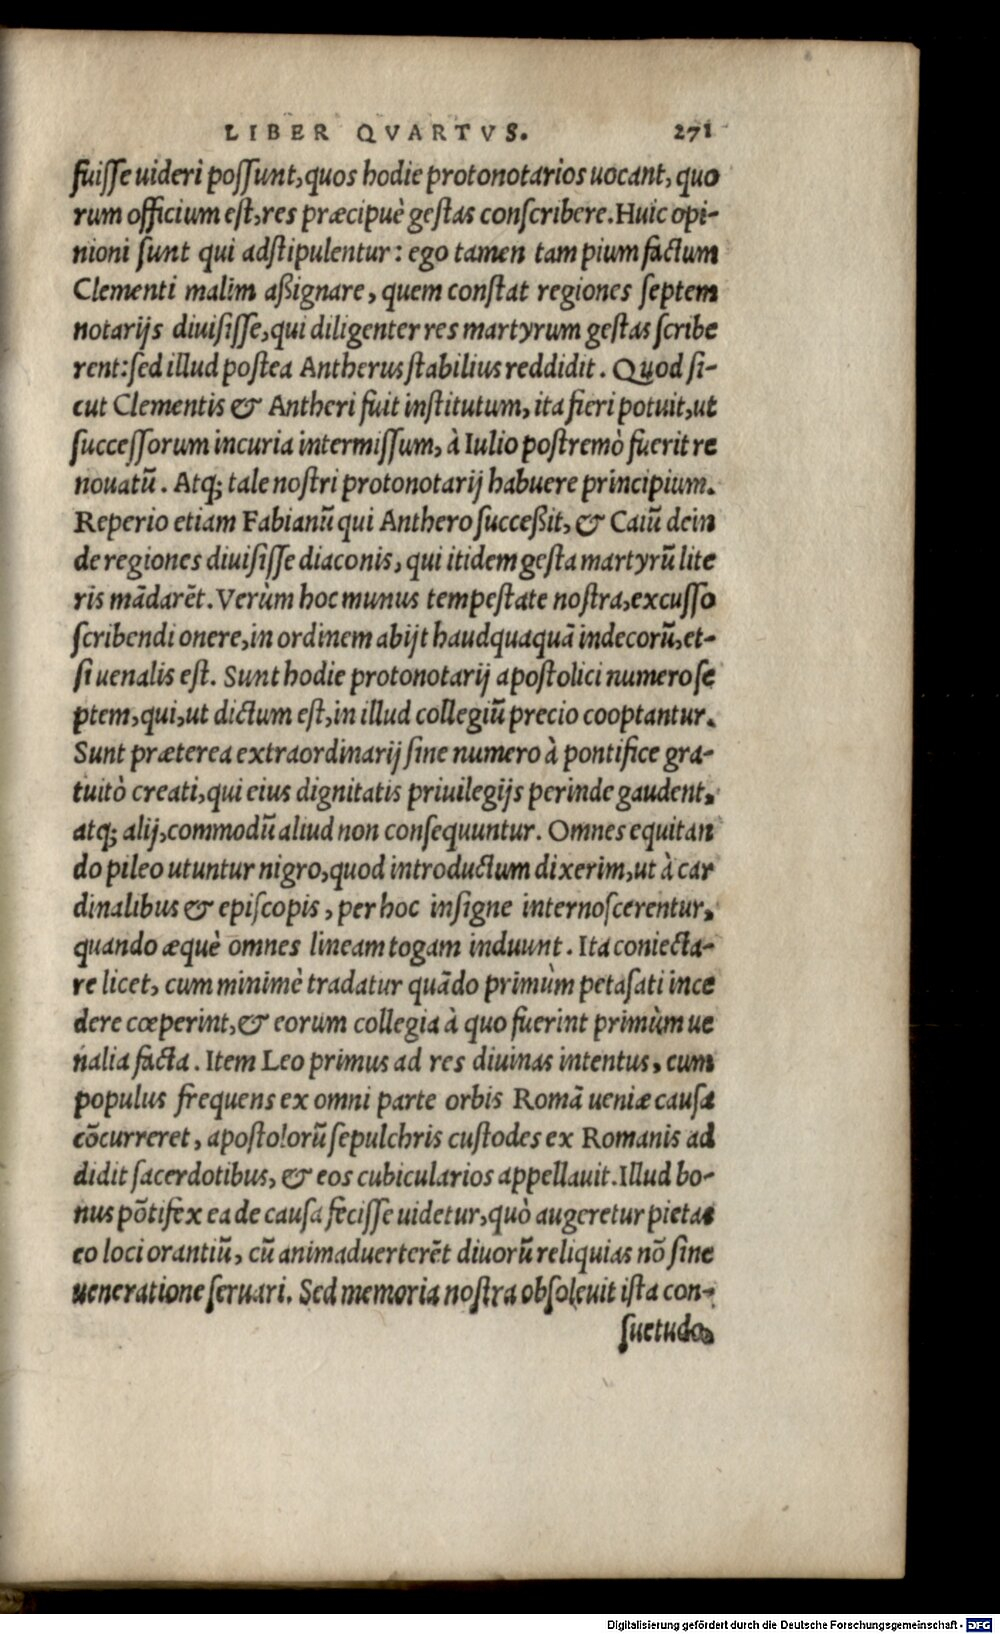 LIBER QVARTVS. 271
fuisse uideri possunt, quos hodie protonotarios uocant, quo
rum officium est, res præcipuè gestas conscribere. Huic opi-
nioni sunt qui adstipulentur: ego tamen tam pium factum
Clementi malim aßignare, quem constat regiones septem
notarijs diuisisse, qui diligenter res martyrum gestas scribe
rent: sed illud postea Antherus stabilius reddidit. Quod si-
cut Clementis & Antheri fuit institutum, ita fieri potuit, ut
successorum incuria intermissum, à Iulio postremò fuerit re
nouatũ. Atq; tale nostri protonotarij habuere principium.
Reperio etiam Fabianũ qui Anthero succeßit, & Caiũ dein
de regiones diuisisse diaconis, qui itidem gesta martyrũ lite
ris mãdarẽt. Verùm hoc munus tempestate nostra, excusso
scribendi onere, in ordinem abijt haudquaquã indecorũ, et-
si uenalis est. Sunt hodie protonotarij apostolici numero se
ptem, qui, ut dictum est, in illud collegiũ precio cooptantur.
Sunt præterea extraordinarij sine numero à pontifice gra-
tuitò creati, qui eius dignitatis priuilegijs perinde gaudent,
atq; alij, commodũ aliud non consequuntur. Omnes equitan
do pileo utuntur nigro, quod introductum dixerim, ut à car
dinalibus & episcopis, per hoc insigne internoscerentur,
quando æquè omnes lineam togam induunt. Ita coniecta-
re licet, cum minimè tradatur quãdo primùm petasati ince
dere cœperint, & eorum collegia à quo fuerint primùm ue
nalia facta. Item Leo primus ad res diuinas intentus, cum
populus frequens ex omni parte orbis Romã ueniæ causa
cõcurreret, apostolorũ sepulchris custodes ex Romanis ad
didit sacerdotibus, & eos cubicularios appellauit. Illud bo-
nus põtifex ea de causa fecisse uidetur, quò augeretur pietas
eo loci orantiũ, cũ animaduerterẽt diuorũ reliquias nõ sine
ueneratione seruari. Sed memoria nostra obsoleuit ista con-
suetudo,
Digitalisierung gefördert durch die Deutsche Forschungsgemeinschaft - DFG